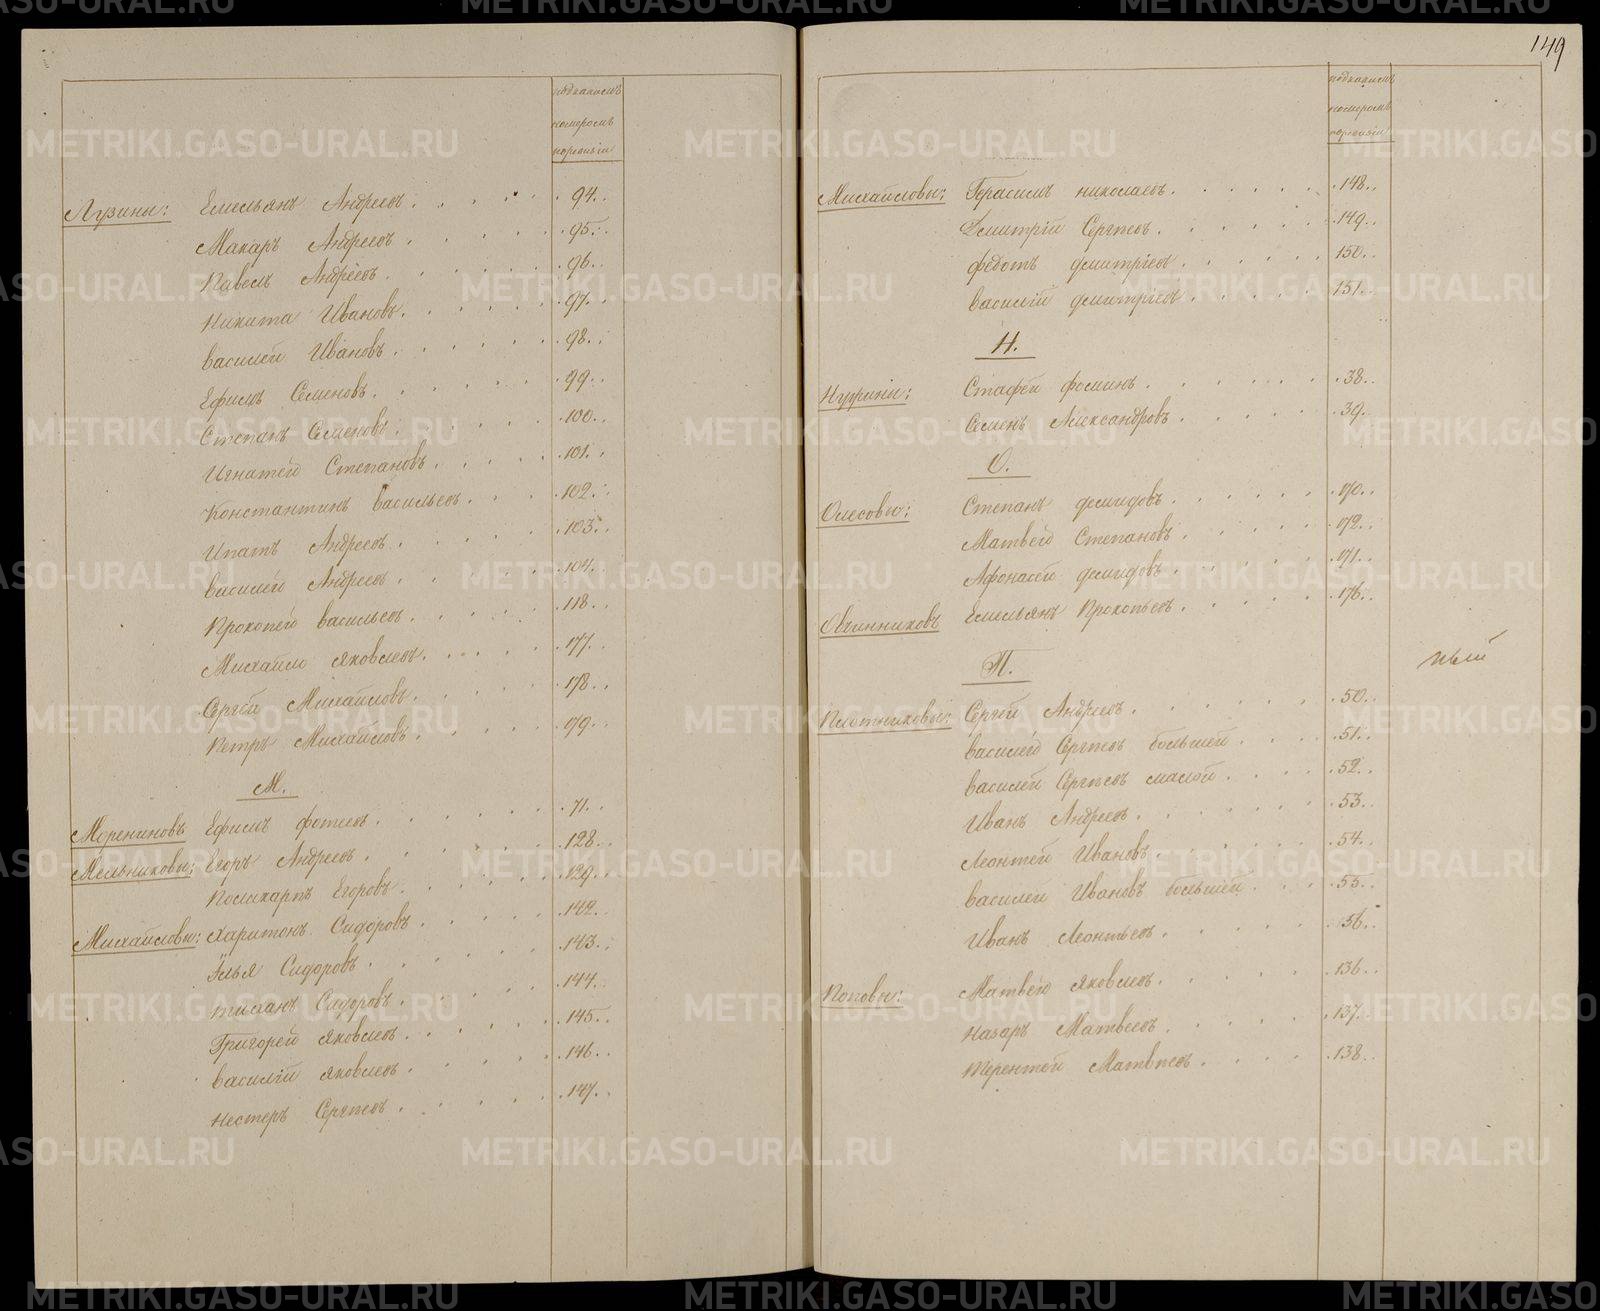 подкакимъ
номеромъ
поревизiи
Лузины: Емельянъ Андреевъ 94.
Макаръ Андреевъ 95.
Павелъ Андреевъ 96.
Никита Ивановъ 97.
Василей Ивановъ 98.
Ефимъ Семеновъ 99.
Степанъ Семеновъ 100.
Игнатей Степановъ 101.
Константинъ Васильевъ 102.
Ипатъ Андреевъ 103.
Василей Андреевъ 104.
Прокопей Васильевъ 118.
Михаилъ Яковлевъ 177.
Сергей Михайловъ 178.
Петръ Михайловъ 179.
М.
Морениновъ Ефимъ Фотеевъ 71.
Мельниковы: Егоръ Андреевъ 128.
Поликарпъ Егоровъ 129.
Михайловы: Харитонъ Сидоровъ 142.
Илья Сидоровъ 143.
Тиханъ Сидоровъ 144.
Григорей Яковлевъ 145.
Василiй Яковлевъ 146.
Нестеръ Сергѣевъ 147.
149
подкакимъ
номеромъ
поревизiи
Михайловы: Герасимъ Николаевъ 148.
Дмитрiй Сергѣевъ 149.
Федотъ Дмитрiевъ 150.
Василiй Дмитрiевъ 151.
Н.
Нужины: Стафей Фоминъ 38.
Семенъ Александровъ 39.
О.
Олесовы: Степанъ Демидовъ 170.
Матвей Степановъ 172.
Афонасей Демидовъ 171.
Овчинниковъ Емельянъ Прокопьевъ 176.
П.
ный
Плотниковы: Сергей Андреевъ 50.
Василей Сергѣевъ большей 51.
Василей Сергѣевъ малой 52.
Иванъ Андреевъ 53.
Леонтей Ивановъ 54.
Василей Ивановъ большей 55.
Иванъ Леонтьевъ 56.
Поповы: Матвей Яковлевъ 136.
Назаръ Матвеевъ 137.
Терентей Матвѣевъ 138.
METRIKI.GASO-URAL.RU